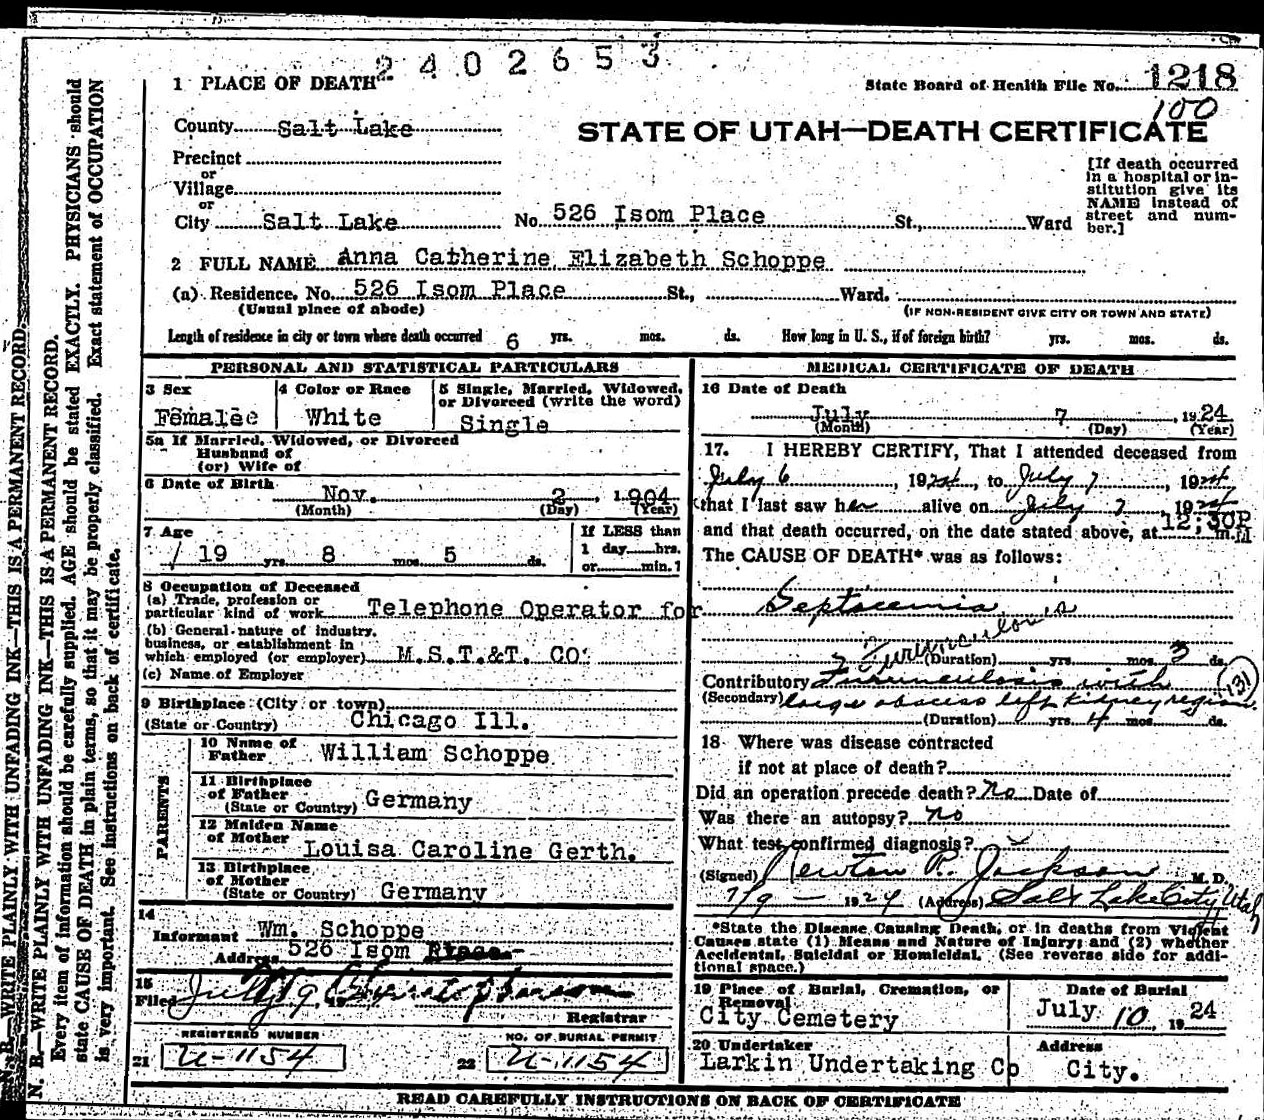 2402653
1 PLACE OF DEATH
State Board of Health File No. 1218
100
County Salt Lake
STATE OF UTAH—DEATH CERTIFICATE
Precinct
or
Village
or
City Salt Lake No. 526 Isom Place St., Ward
[If death occurred
in a hospital or in-
stitution give its
NAME instead of
street and num-
ber.]
2 FULL NAME Anna Catherine Elizabeth Schoppe
(a) Residence, No. 526 Isom Place St., Ward.
(Usual place of abode) (IF NON-RESIDENT GIVE CITY OR TOWN AND STATE)
Length of residence in city or town where death occurred 6 yrs. mos. ds. How long in U. S., if of foreign birth? yrs. mos. ds.
PERSONAL AND STATISTICAL PARTICULARS
3 Sex 4 Color or Race 5 Single, Married, Widowed,
or Divorced (write the word)
Female White Single
5a If Married, Widowed, or Divorced
Husband of
(or) Wife of
6 Date of Birth Nov. 2, 1904
(Month) (Day) (Year)
7 Age If LESS than
19 yrs 8 mos 5 ds. 1 day hrs.
or min.?
8 Occupation of Deceased
(a) Trade, profession or
particular kind of work Telephone Operator for
(b) General nature of industry,
business, or establishment in
which employed (or employer) M.S.T.&T. CO.
(c) Name of Employer
9 Birthplace (City or town)
(State or Country) Chicago Ill.
PARENTS
10 Name of
Father William Schoppe
11 Birthplace
of Father
(State or Country) Germany
12 Maiden Name
of Mother Louisa Caroline Gerth.
13 Birthplace
of Mother
(State or Country) Germany
14
Informant Wm. Schoppe
Address 526 Isom Place
15
Filed July 9
Registrar
REGISTERED NUMBER NO. OF BURIAL PERMIT
21 U-1154 22 U-1154
MEDICAL CERTIFICATE OF DEATH
16 Date of Death
July 7, 1924
(Month) (Day) (Year)
17. I HEREBY CERTIFY, That I attended deceased from
July 6, 1924, to July 7, 1924
that I last saw her alive on July 7 1924
and that death occurred, on the date stated above, at 12;30P m.M
The CAUSE OF DEATH* was as follows:
Septocemia
Furunculosis
(Duration) yrs. mos. 3 ds.
Contributory Furunculosis with
(Secondary) large abscess left kidney region.
131
(Duration) yrs. 4 mos. ds.
18 Where was disease contracted
if not at place of death?
Did an operation precede death? No Date of
Was there an autopsy? No
What test confirmed diagnosis?
(Signed) Newton R. Jackson M. D.
7/9 - 1924 (Address) Salt Lake City Utah
*State the Disease Causing Death, or in deaths from Violent
Causes state (1) Means and Nature of Injury; and (2) whether
Accidental, Suicidal or Homicidal. (See reverse side for addi-
tional space.)
19 Place of Burial, Cremation, or
Removal
City Cemetery
Date of Burial
July 10, 1924
20 Undertaker Address
Larkin Undertaking Co City.
READ CAREFULLY INSTRUCTIONS ON BACK OF CERTIFICATE
N. B.—WRITE PLAINLY WITH UNFADING INK—THIS IS A PERMANENT RECORD.
N. B.—WRITE PLAINLY WITH UNFADING INK—THIS IS A PERMANENT RECORD.
Every item of information should be carefully supplied. AGE should be stated EXACTLY. PHYSICIANS should
state CAUSE OF DEATH in plain terms, so that it may be properly classified. Exact statement of OCCUPATION
is very important. See instructions on back of certificate.